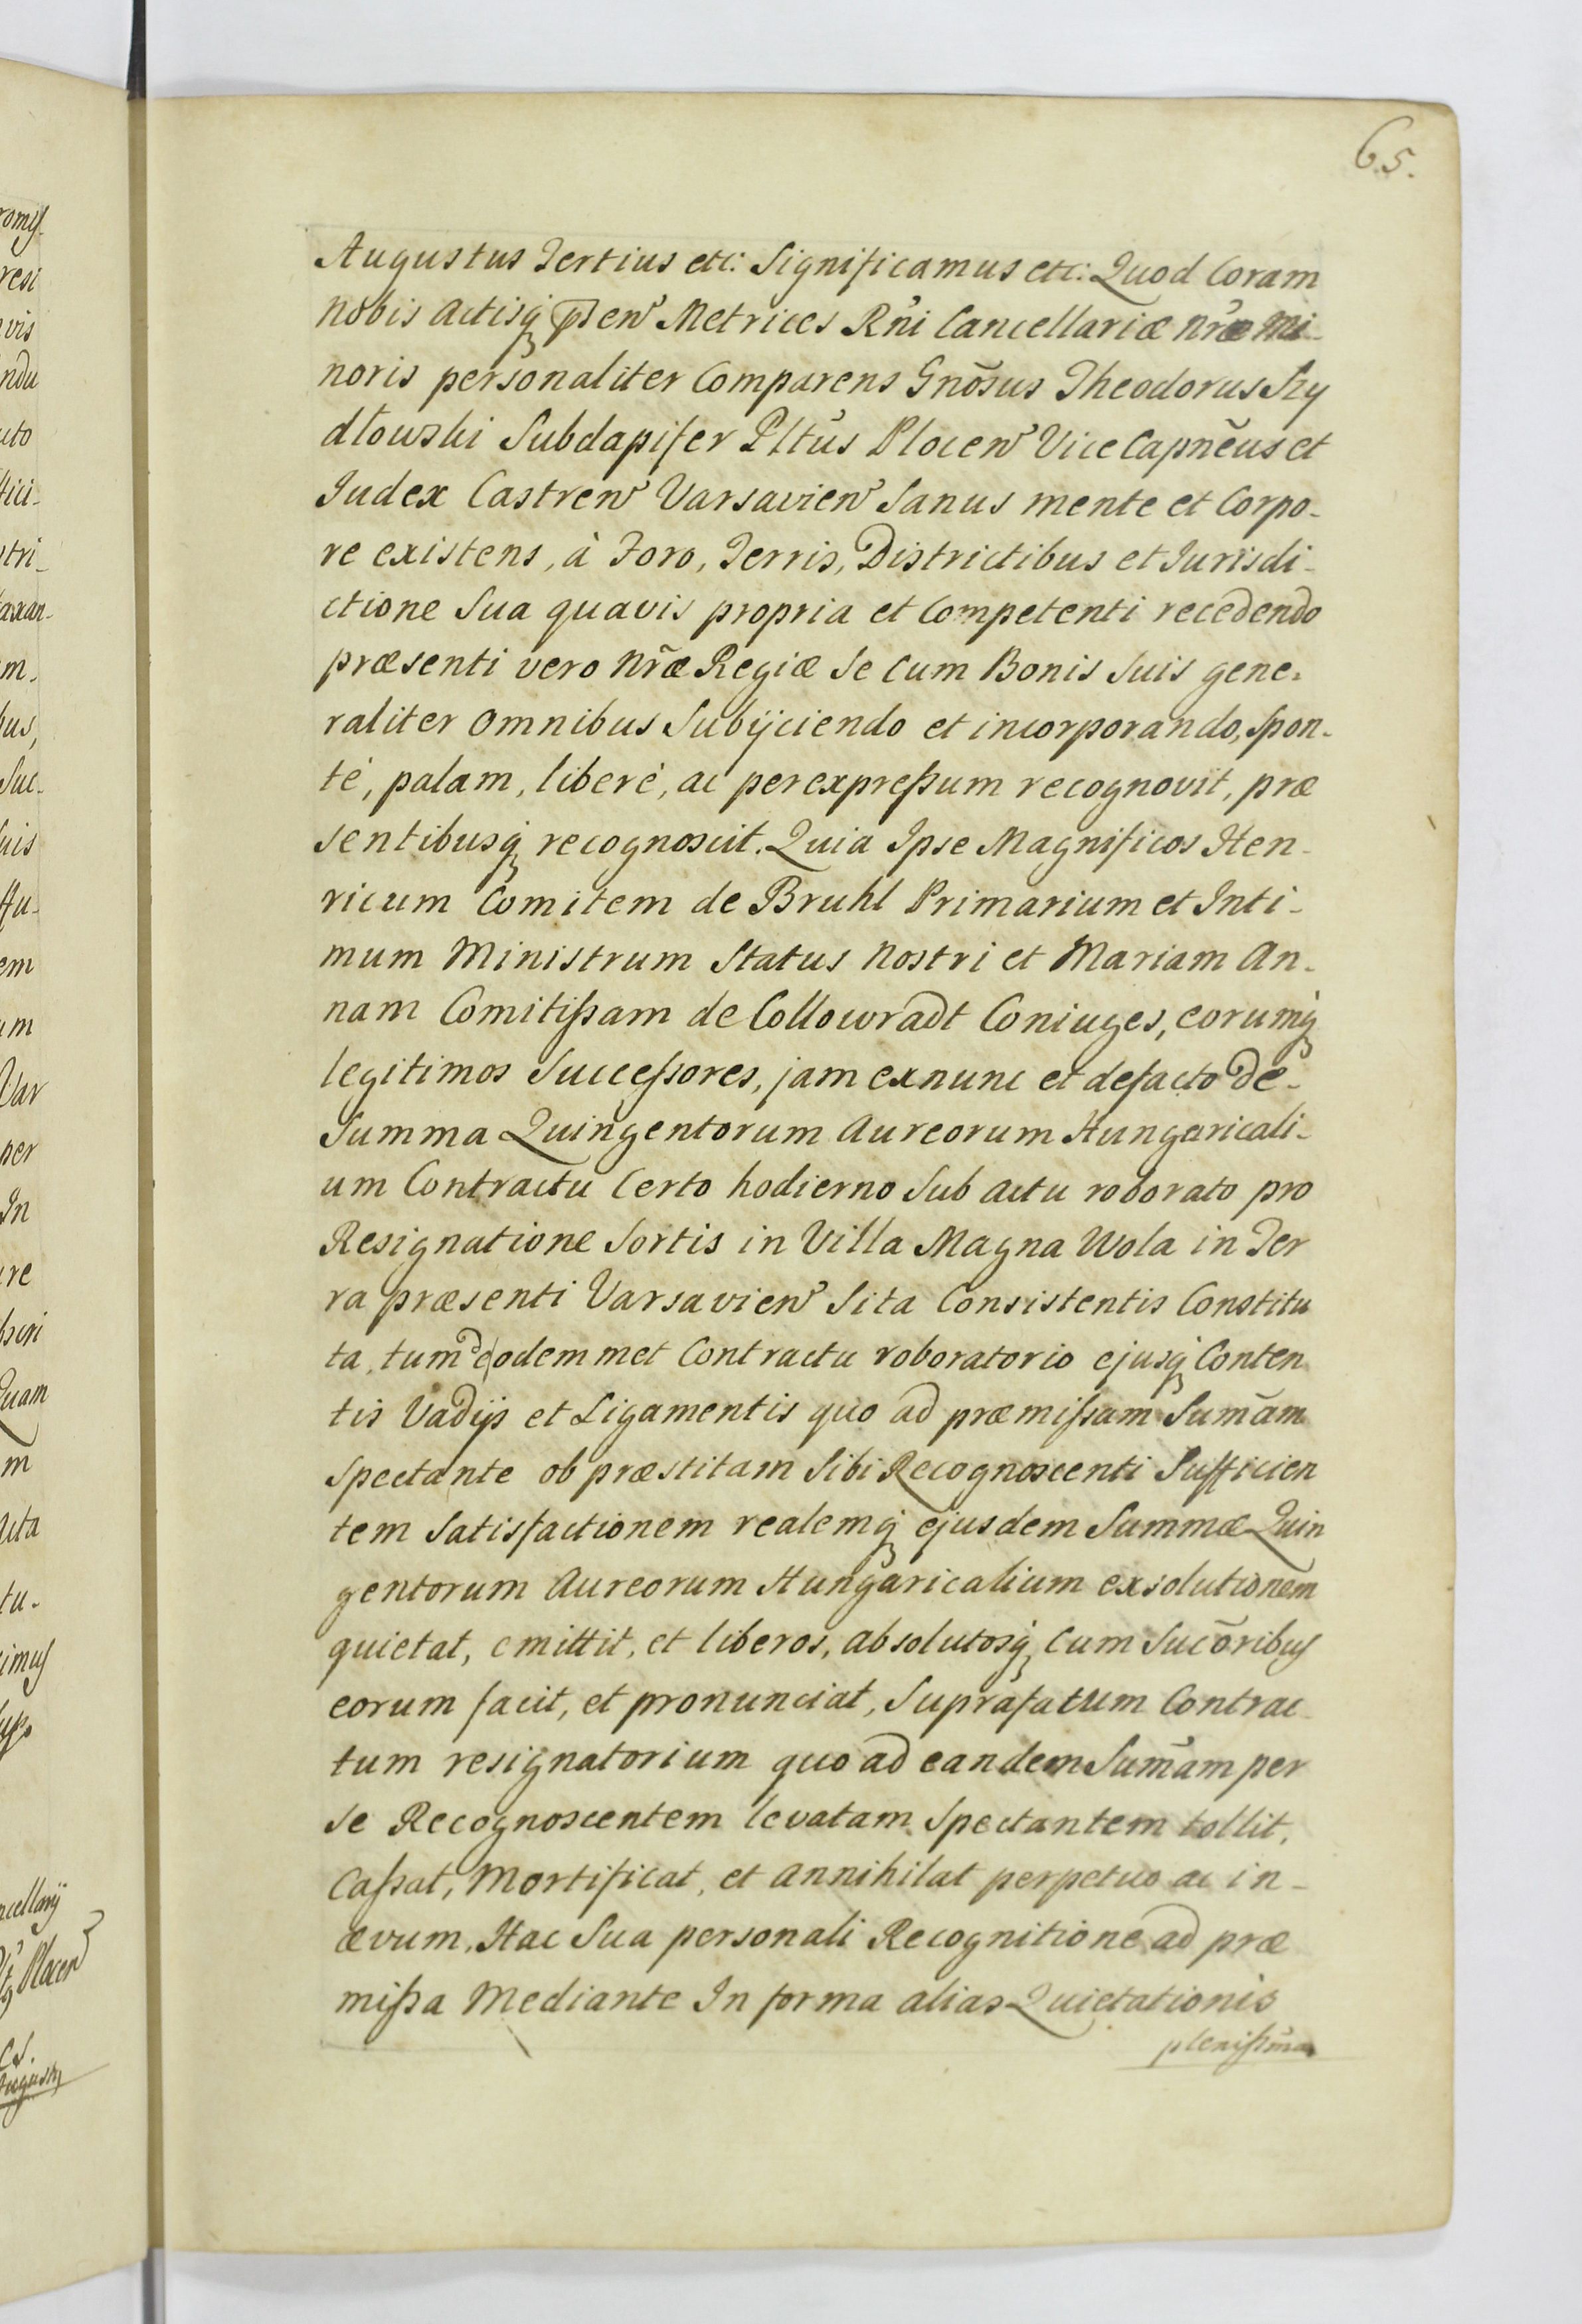 65.
Augustus Tertius etc: Significamus etc: Quod Coram
nobis Actisq̃ p̃sen̄ Metrices Rñi Cancellariæ nr̃æ Mi-
noris personaliter Comparens Gnõsus Theodorus Szy
dłowski Subdapifer Pltũs Plocen̄ Vice Capnẽus et
Iudex Castren̄ Varsavien̄ Sanus mente et Corpo-
re existens, à Foro, Terris, Districtibus et Iurisdi-
ctione Sua quavis propria et Competenti recedendo
præsenti vero nr̃æ Regiæ Se Cum Bonis Suis gene-
raliter omnibus Subijciendo et incorporando, Spon-
tè, palam, liberè, ac perexpreßum recognovit, præ
sentibusq̃ recognoscit. Quia Ipse Magnificos Hen-
ricum Comitem de Bruhl Primarium et Inti-
mum Ministrum Status Nostri et Mariam An-
nam Comitißam de Collowradt Coniuges, eorumq̃
legitimos Succeßores, jam exnunc et defacto de-
Summa Quingentorum Aureorum Hungaricali-
um Contractu Certo hodierno Sub actu roborato pro
Resignatione Sortis in Villa Magna Wola in Ter
ra præsenti Varsavien̄ Sita Consistentis Constitu
ta, tum de eodemmet Contractu roboratorio ejusq̃ Conten
tis Vadijs et Ligamentis quo ad præmißam Sum̃am
Spectante ob præstitam Sibi Recognoscenti Sufficien
tem Satisfactionem realemq̃ ejusdem Summæ Quin
gentorum Aureorum Hungaricalium exsolutionem
quietat, emittit, et liberos, absolutosq̃ Cum Sucõribus
eorum facit, et pronunciat, Suprafatum Contrac
tum resignatorium quo ad eandem Sum̃am per
Se Recognoscentem levatam Spectantem tollit,
Caßat, Mortificat, et Annihilat perpetuo ac in-
ævum. Hac Sua personali Recognitione ad præ
mißa Mediante In forma alias Quietationis
plenißima